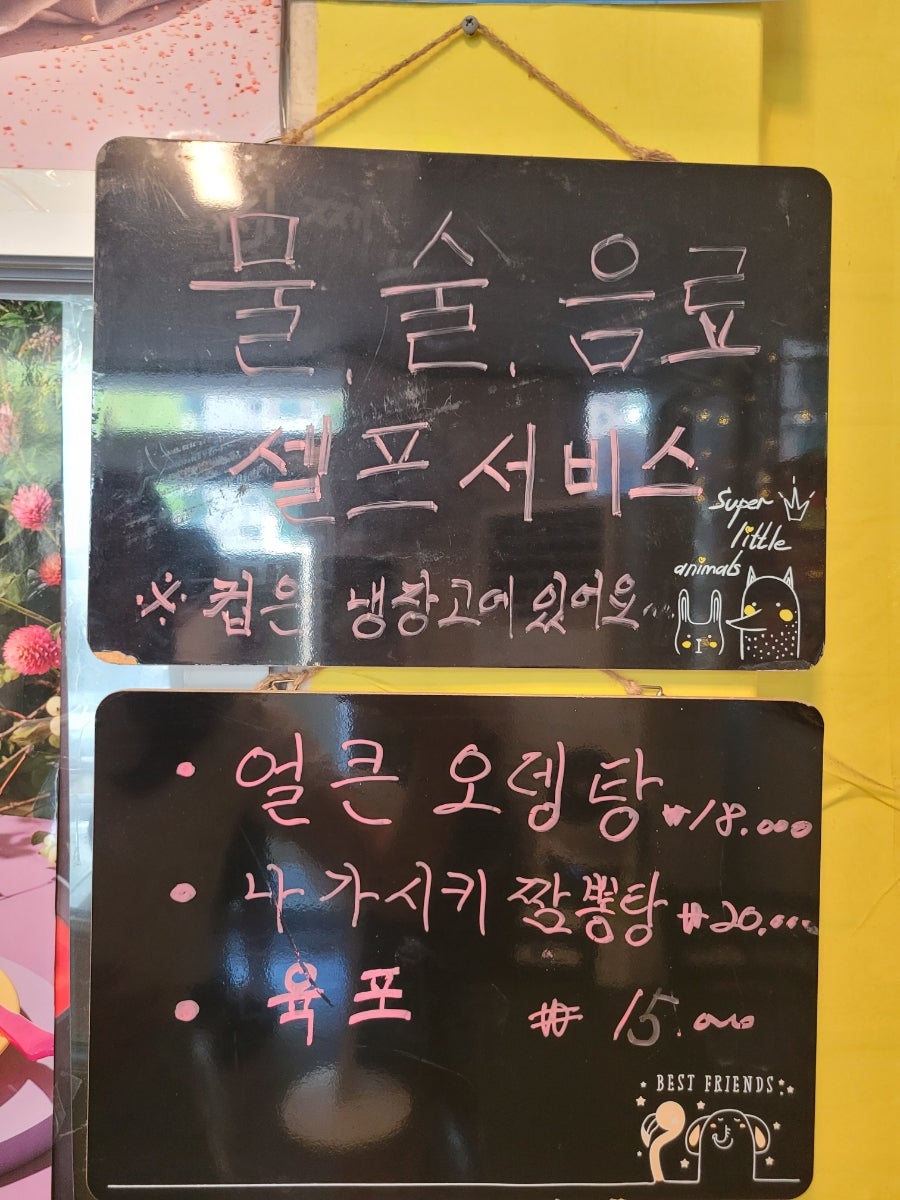 물, 술, 음료
셀프서비스
Super
little
animals
※ 컵은 냉장고에 있어요~
• 얼큰 오뎅탕 ₩18.000
• 나가시키 짬뽕탕 ₩20.000
• 육포 ₩ 15.000
BEST FRIENDS